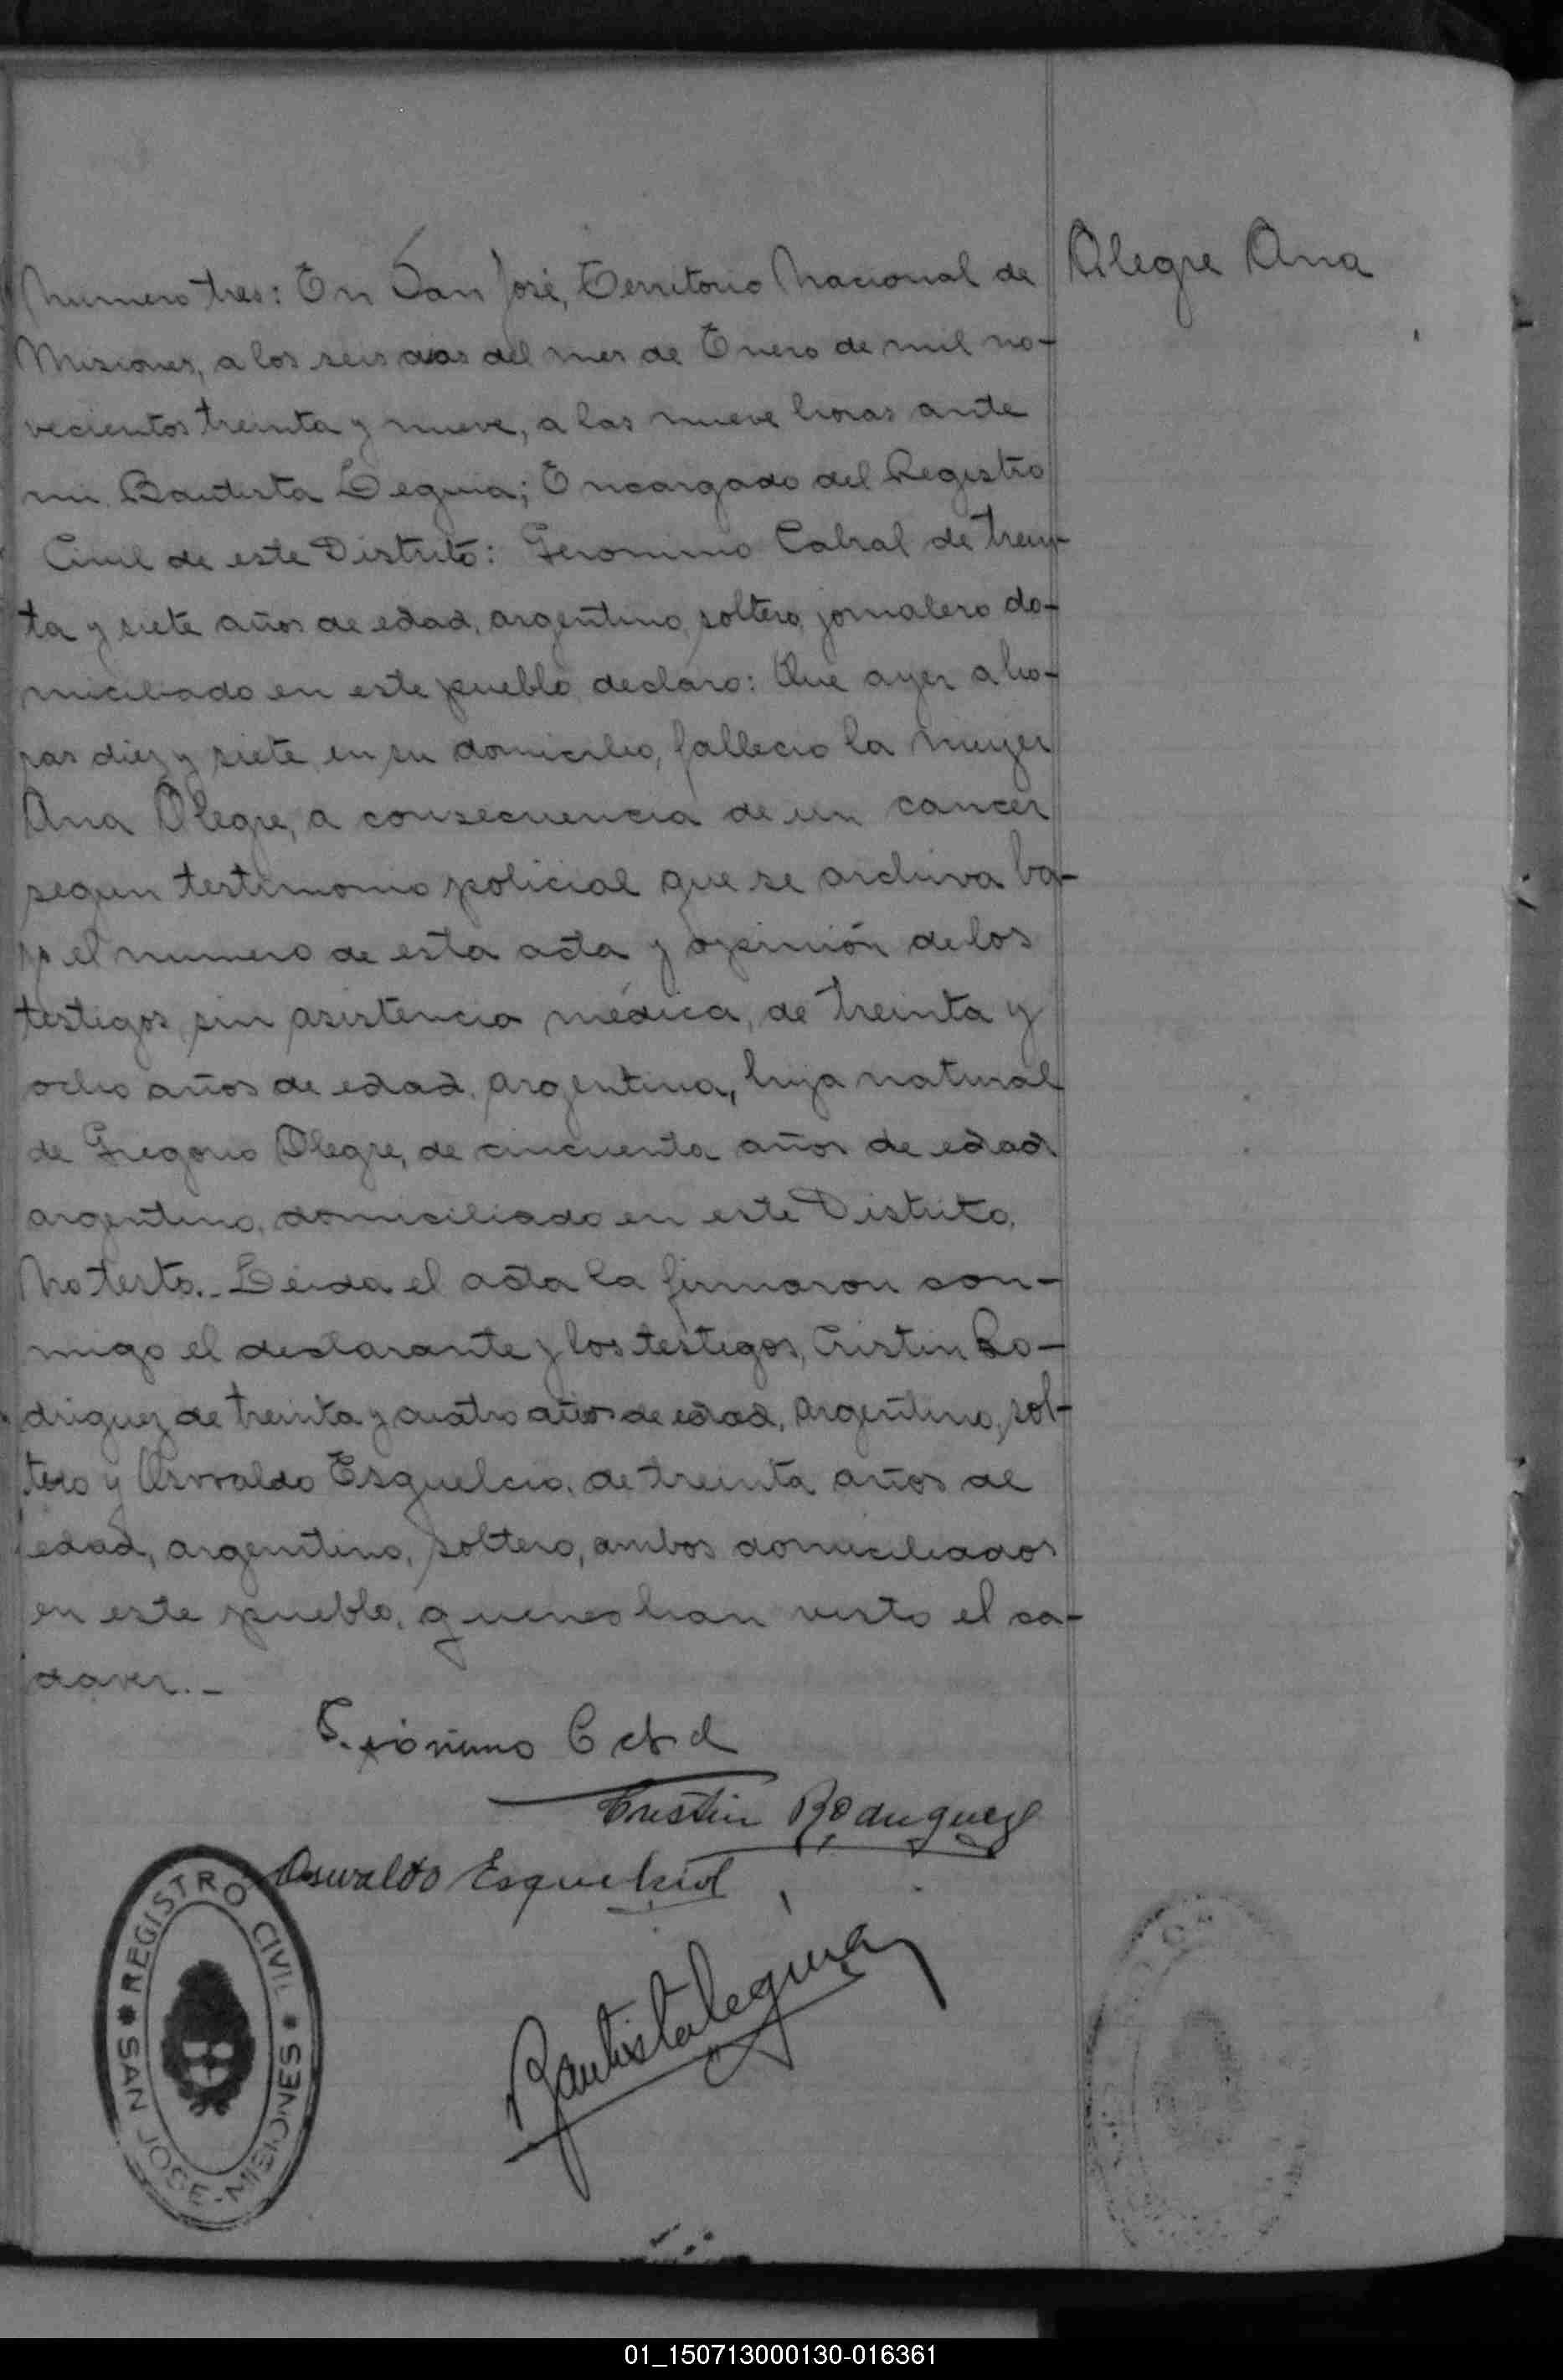 Alegre Ana
Numero tres: En San José, Territorio Nacional de
Misiones, a los seis dias del mes de Enero de mil no-
vecientos treinta y nueve, a las nueve horas ante
mi Bautista Leguia; Encargado del Registro
Civil de este Distrito: Geronimo Cabral de trein-
ta y siete años de edad, argentino, soltero, jornalero do-
miciliado en este pueblo, declaro: Que ayer a ho-
ras diez y siete, en su domicilio, fallecio la mujer
Ana Alegre, a consecuencia de un cancer
segun testimonio policial que se archiva ba-
jo el numero de esta acta y opinión de los
testigos, sin asistencia médica, de treinta y
ocho años de edad, argentina, hija natural
de Gregorio Alegre, de cincuenta años de edad
argentino, domiciliado en este Distrito.
No testo.- Leida el acta la firmaron con-
migo el declarante y los testigos, Cristin Ro-
driguez de treinta y cuatro años de edad, argentino, sol-
tero y Osvaldo Esquelcio, de treinta años de
edad, argentino, soltero, ambos domiciliados
en este pueblo, quienes han visto el ca-
daver.-
Geronimo Cabral
Cristin Rodriguez
Oswaldo
Bautista Leguia
REGISTRO CIVIL
SAN JOSE-MISIONES
01_150713000130-016361